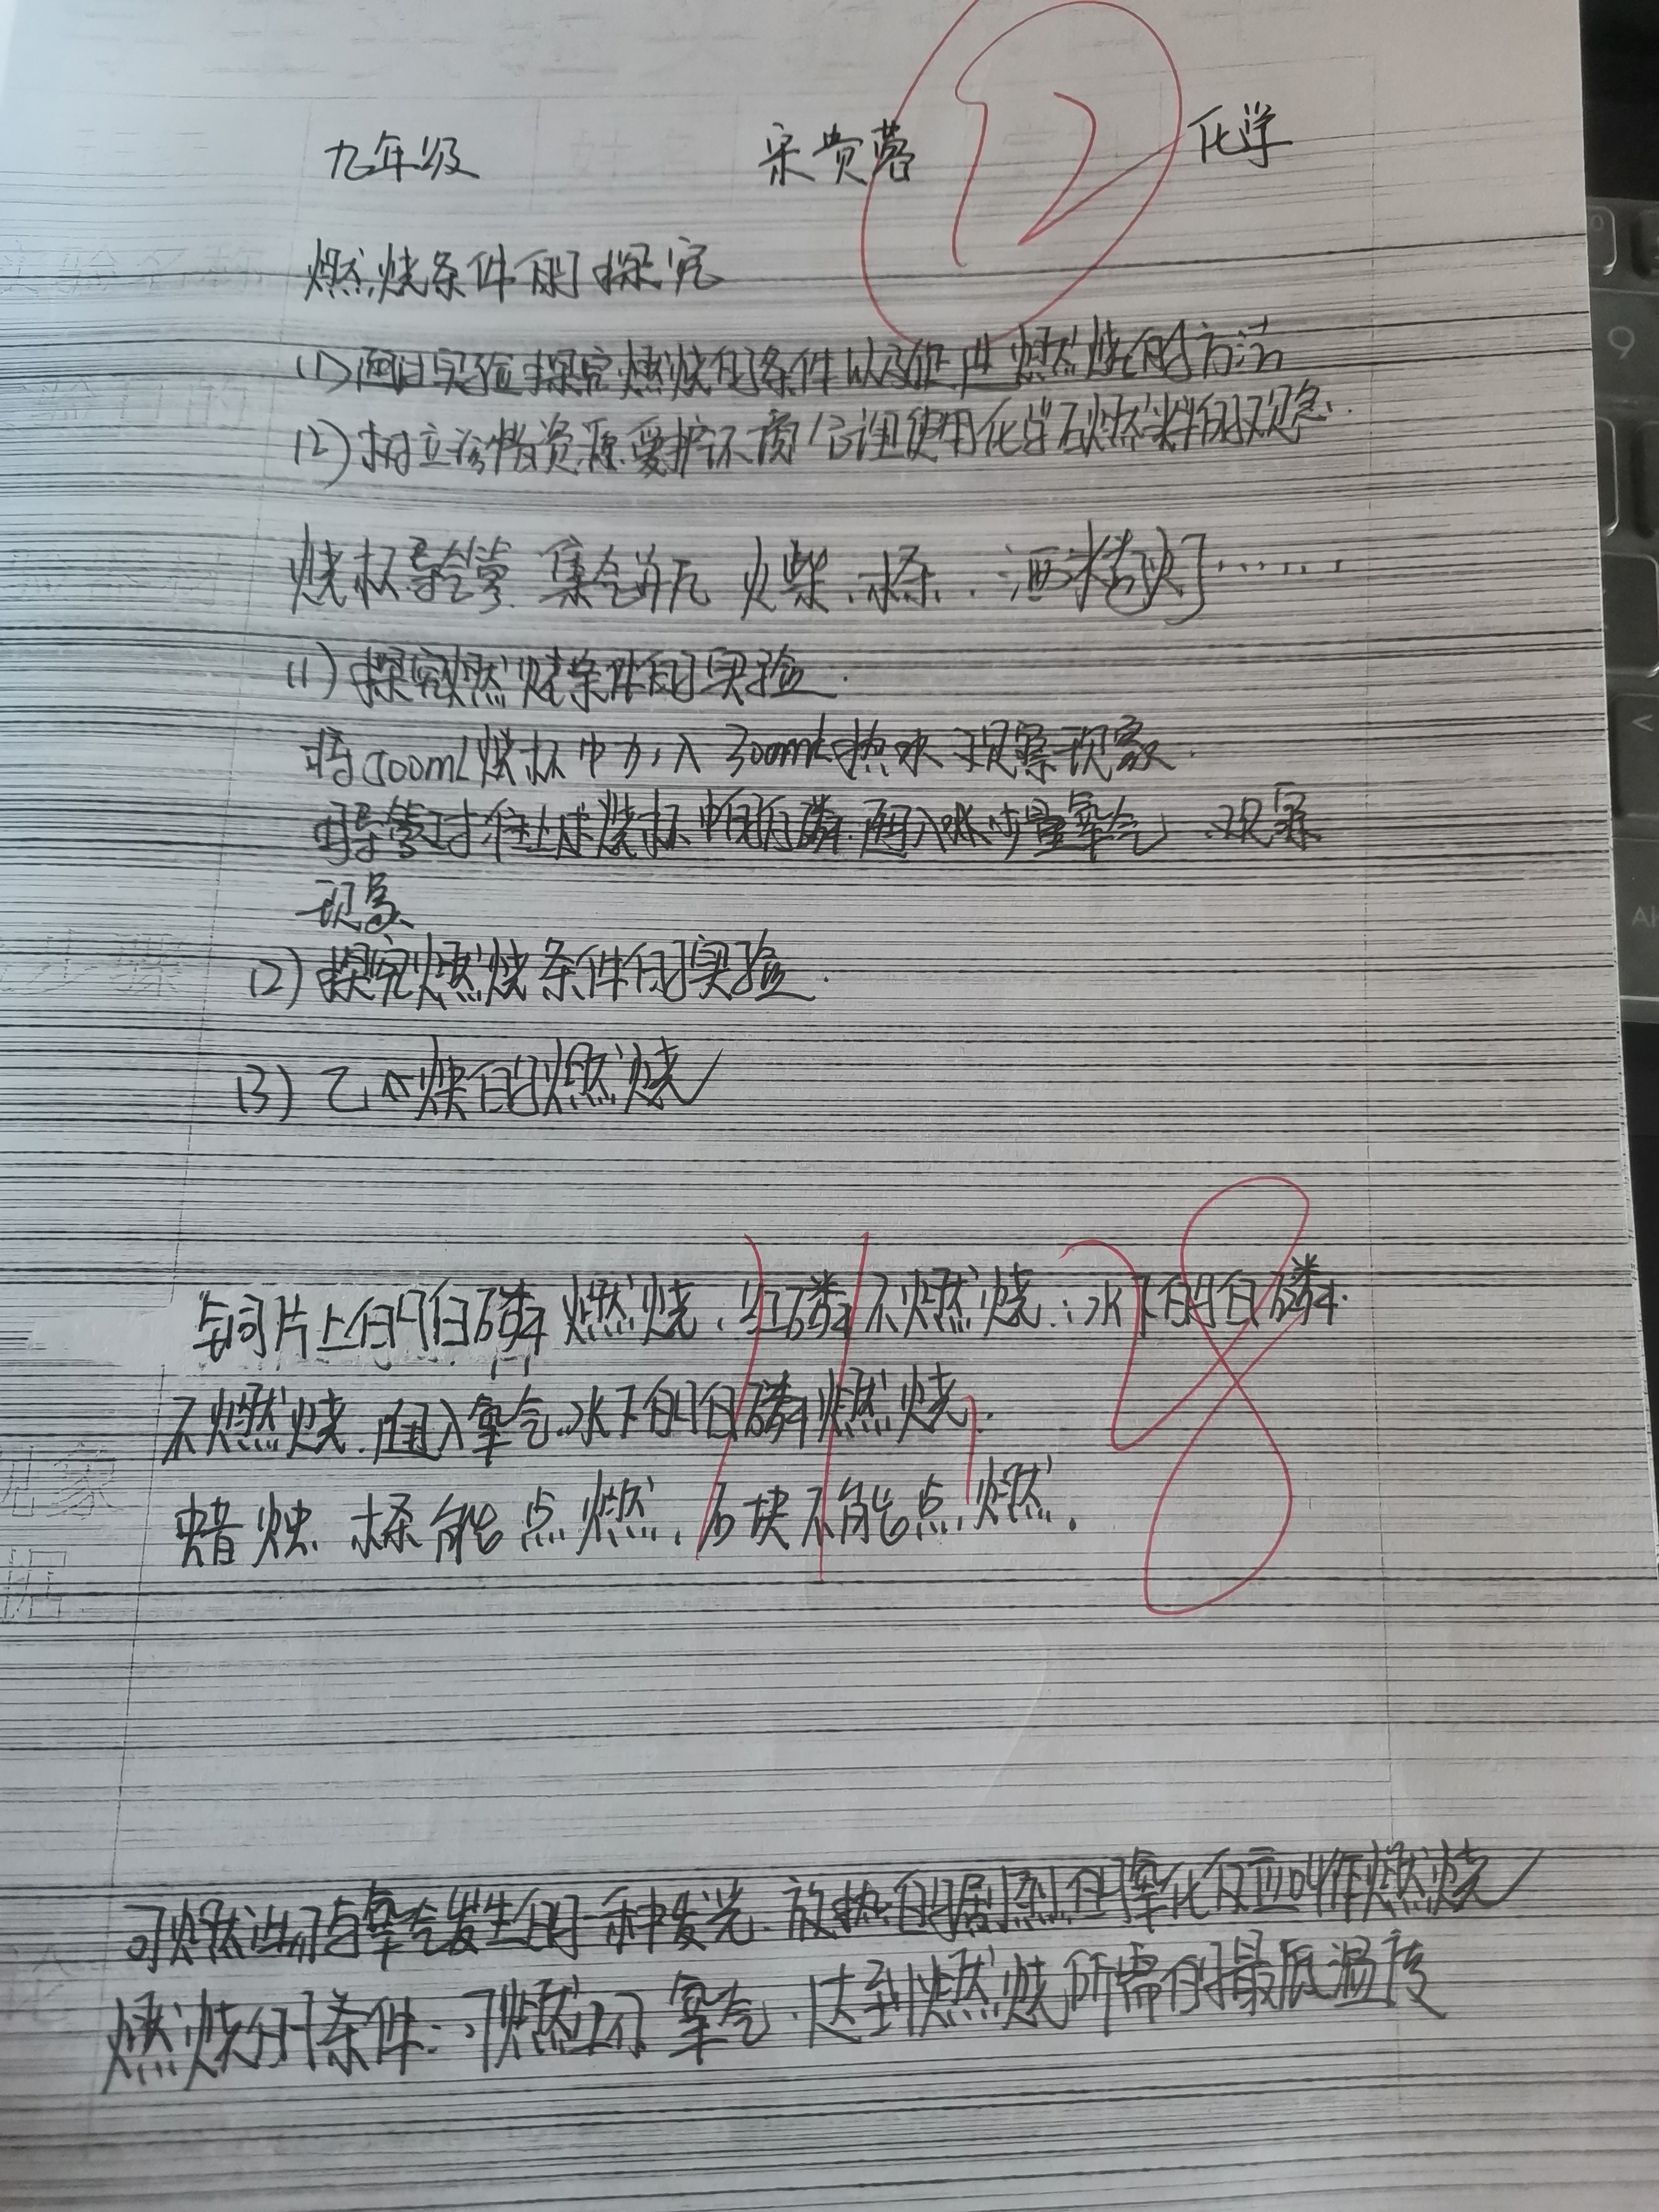 九年级 宋贵蓉 12 化学
燃烧条件的探究
(1)通过实验探究燃烧的条件以及促进燃烧的方法
(2)树立珍惜资源爱护环境,合理使用化学石燃料的观念.
烧杯导气管 集气瓶 火柴、木条、酒精灯……
(1)探究燃烧条件的实验.
将500mL烧杯中加入300mL热水观察现象.
导管对准上述烧杯中的白磷.通入少量氧气,观察
现象
(2)探究燃烧条件的实验.
(3)乙炔的燃烧
铜片上的白磷燃烧,红磷不燃烧;水下的白磷.
不燃烧.通入氧气.水下的白磷燃烧.
蜡烛.木条能点燃,石块不能点燃.
11.28
可燃物与氧气发生的一种发光.放热的剧烈的氧化反应叫作燃烧
燃烧的条件:可燃物 氧气.达到燃烧所需的最低温度